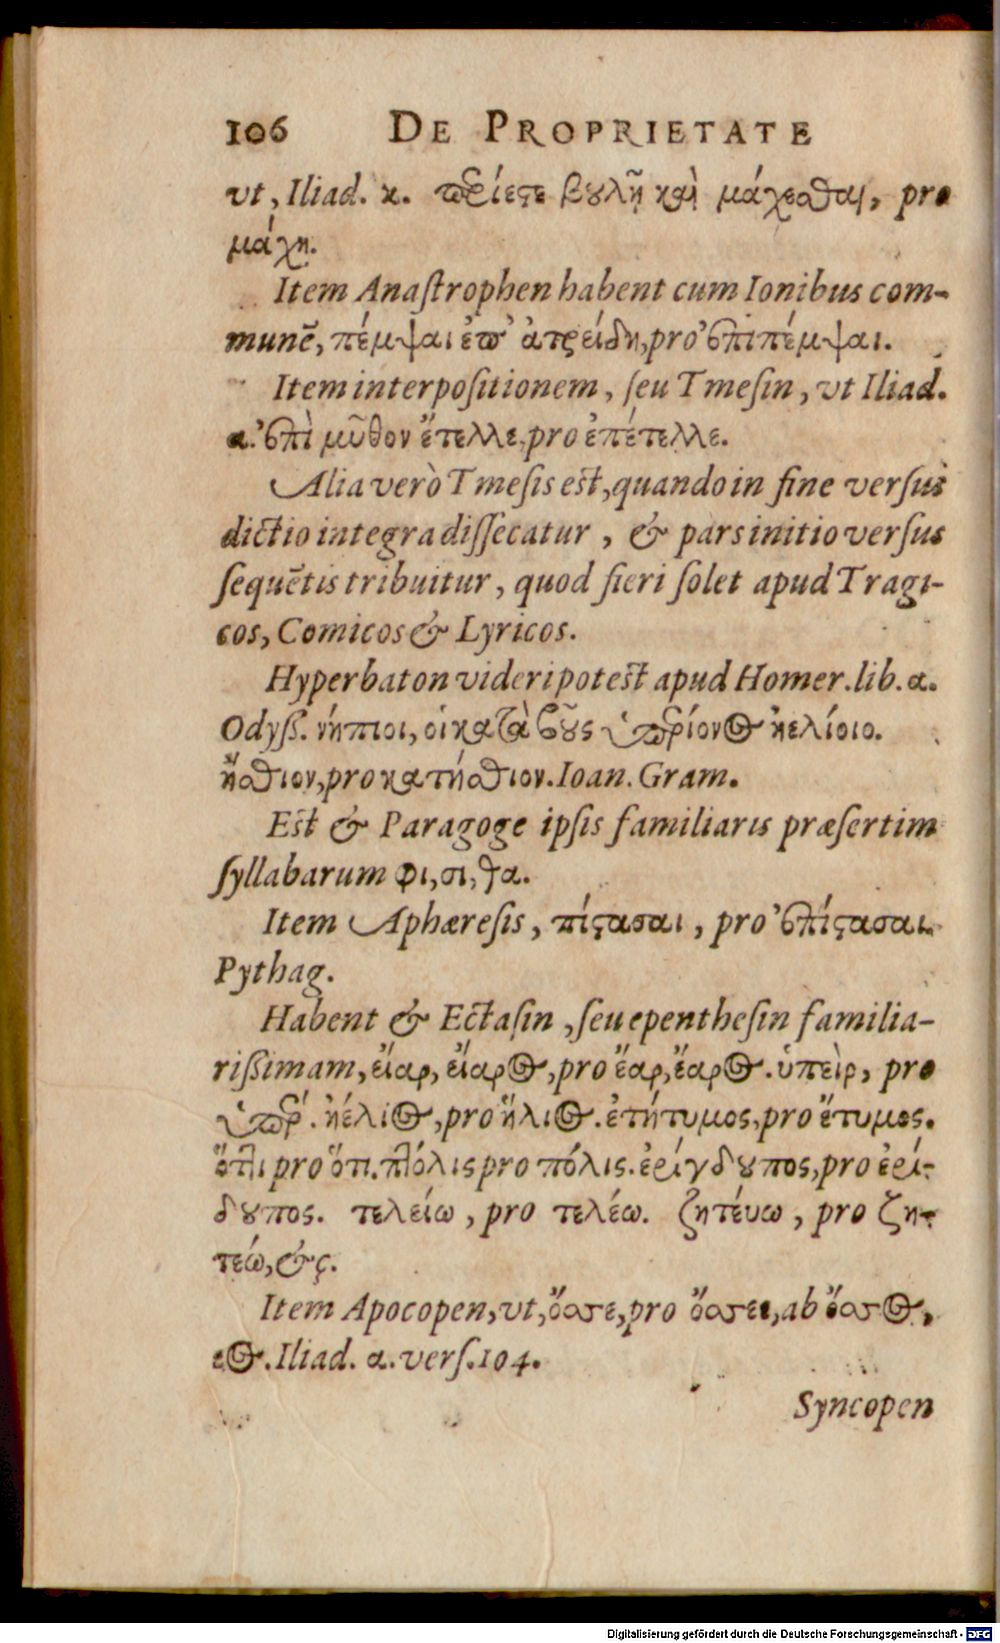 106 DE PROPRIETATE
vt, Iliad. κ. περίεϛε βουλῇ καὶ μάχεσθαι, pro
μάχη.
Item Anaſtrophen habent cum Ionibus com-
munē, πέμψαι ἐπ' ἀτρείδη, pro ἐπιπέμψαι.
Item interpoſitionem, ſeu Tmeſin, vt Iliad.
α. ἐπὶ μῦθον ἔτελλε, pro ἐπέτελλε.
Alia verò Tmeſis eſt, quando in fine verſus
dictio integra diſſecatur, & pars initio verſus
ſequētis tribuitur, quod fieri ſolet apud Tragi-
cos, Comicos & Lyricos.
Hyperbaton videri poteſt apud Homer. lib. α.
Odyſſ. νήπιοι, οἱ κατὰ βοῦς ὑπερίονος ἠελίοιο.
ἤσθιον, pro κατήσθιον. Ioan. Gram.
Eſt & Paragoge ipſis familiaris præſertim
ſyllabarum φι, σι, θα.
Item Aphæreſis, πίϛασαι, pro ἐπίϛασαι.
Pythag.
Habent & Ectaſin, ſeu epentheſin familia-
riſſimam, εἴαρ, εἴαρος, pro ἔαρ, ἔαρος. ὑπεὶρ, pro
ὑπέρ. ἠέλιος, pro ἥλιος. ἐτήτυμος, pro ἔτυμος.
ὅτλι pro ὅτι. πλόλις pro πόλις. ἐρίγδουπος, pro ἐρί-
δουπος. τελείω, pro τελέω. ζητέυω, pro ζη-
τεώ, &c.
Item Apocopen, vt, ὄσσε, pro ὄσσεε, ab ὄσσος,
εος. Iliad. α. verſ. 104.
Syncopen
Digitalisierung gefördert durch die Deutsche Forschungsgemeinschaft - DFG